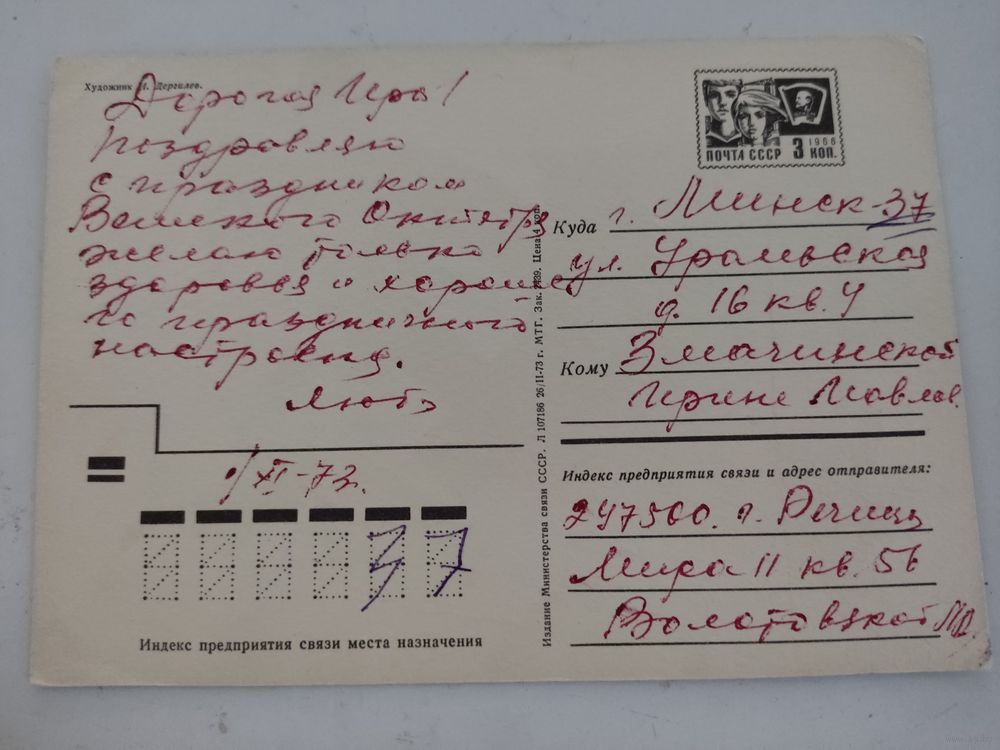 Художник И. Дергилев.
Дорогая Ира!
Поздравляю
с праздником
Великого Октября
желаю только
здоровья и хороше
го праздничного
настроения.
Люба
1/XI-73.
37
Индекс предприятия связи места назначения
Издание Министерства связи СССР. Л 107186 26/II-73 г. МТГ. Зак. 2839. Цена 4 коп.
ПОЧТА СССР 3 КОП.
1966
Куда г. Минск-37
ул. Уральская
д. 16 кв. 4
Кому Змачинской
Ирине Павлов.
Индекс предприятия связи и адрес отправителя:
247500. г. Речица
Мира 11 кв. 56
Волотовской